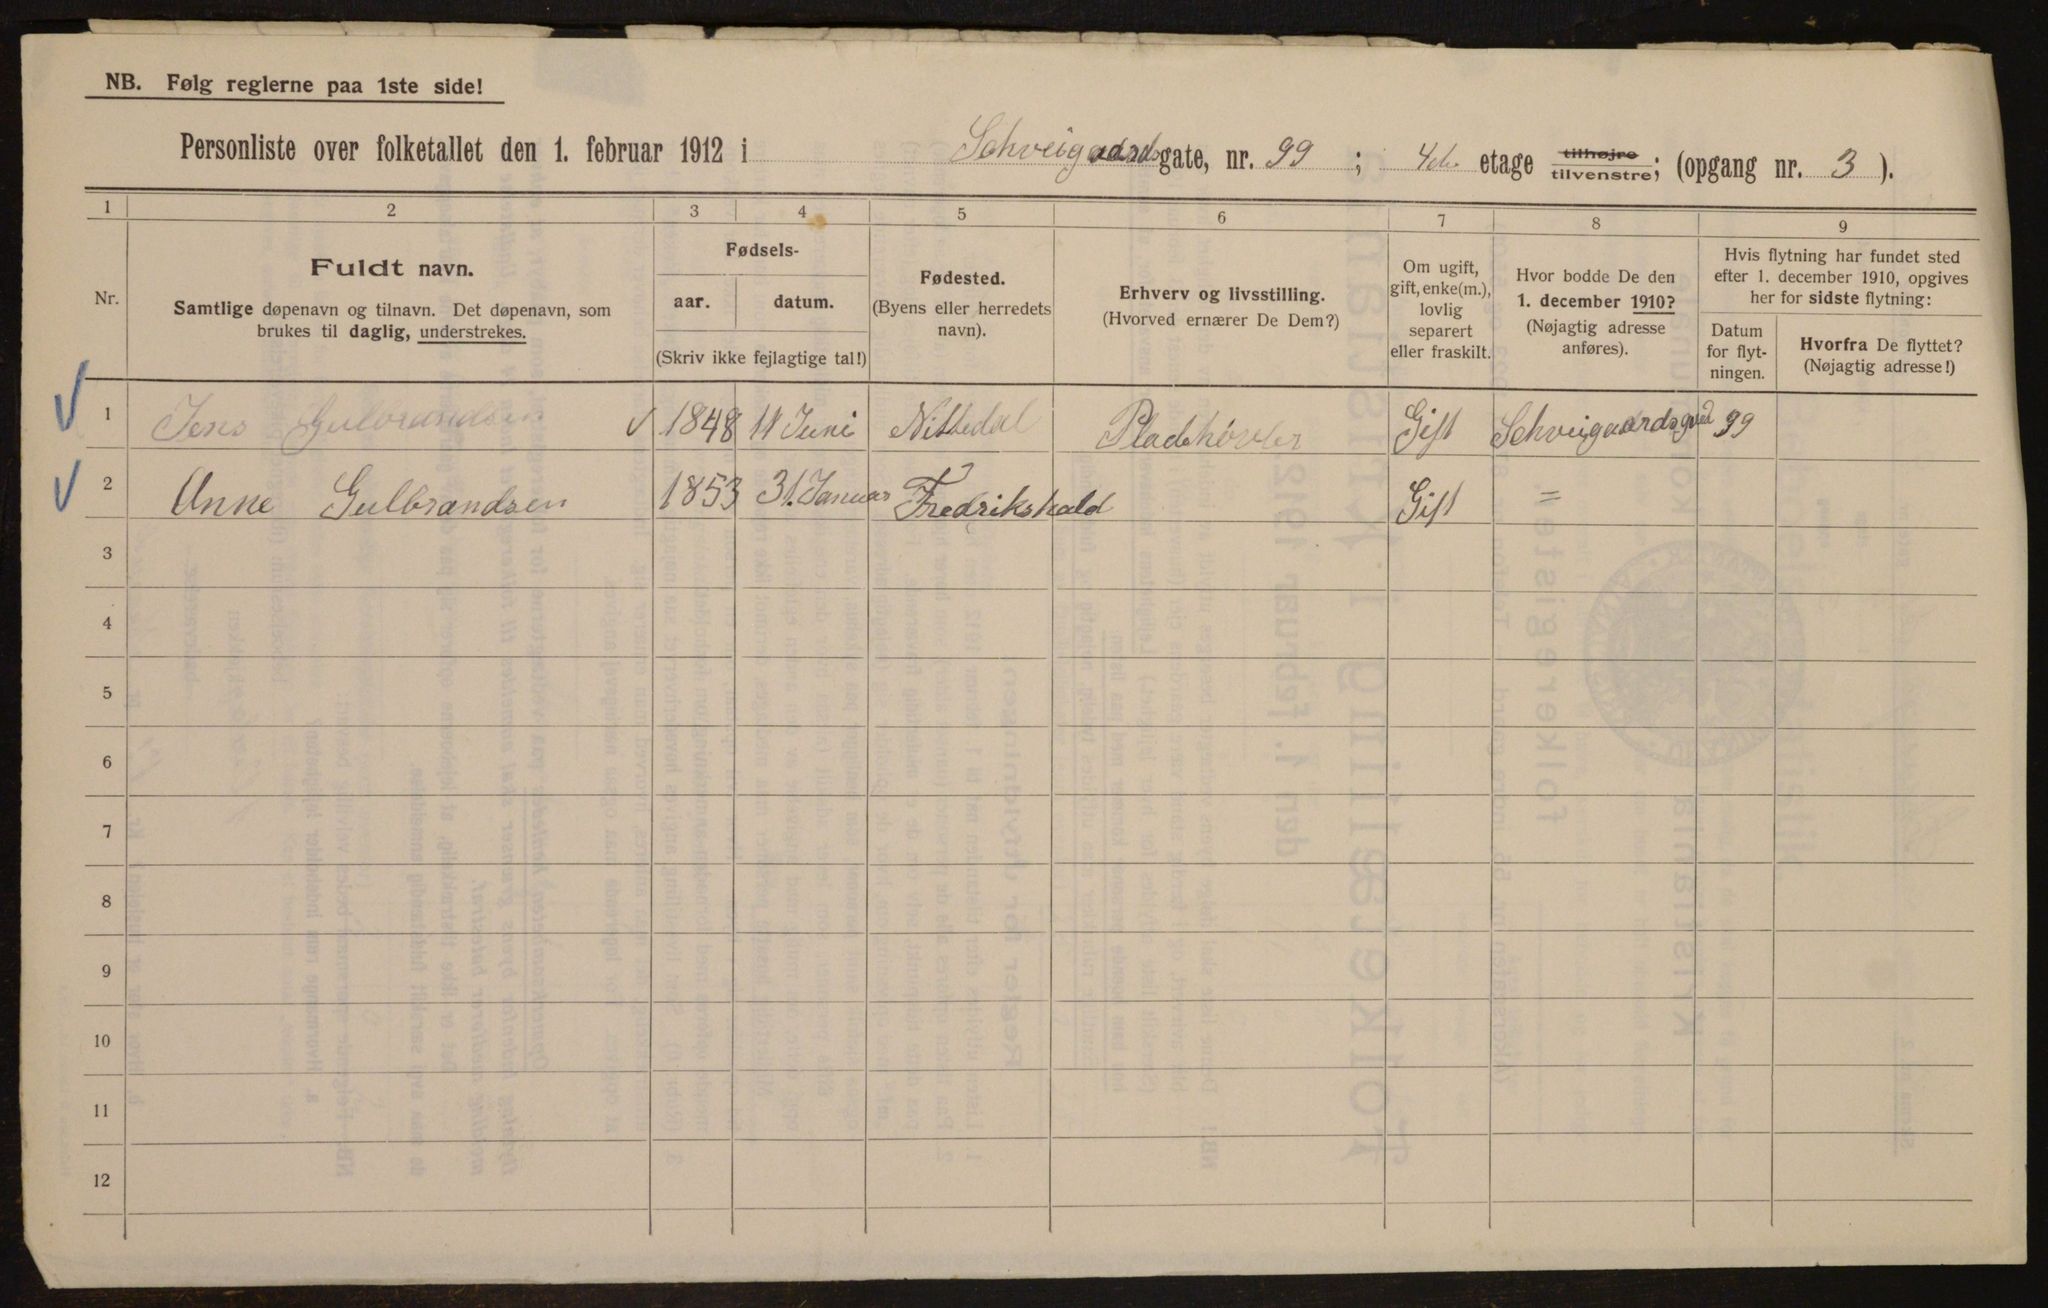 NB. Følg reglerne paa 1ste side!
Personliste over folketallet den 1. februar 1912 i Schveigaardsgate, nr. 99 ; 4de etage tilhøjre tilvenstre; (opgang nr. 3 ).
1 2 3 4 5 6 7 8 9
Nr.
Fuldt navn.
Samtlige døpenavn og tilnavn. Det døpenavn, som
brukes til daglig, understrekes.
Fødsels-
aar. datum.
(Skriv ikke fejlagtige tal!)
Fødested.
(Byens eller herredets
navn).
Erhverv og livsstilling.
(Hvorved ernærer De Dem?)
Om ugift,
gift, enke(m.),
lovlig
separert
eller fraskilt.
Hvor bodde De den
1. december 1910?
(Nøjagtig adresse
anføres).
Hvis flytning har fundet sted
efter 1. december 1910, opgives
her for sidste flytning:
Datum
for flyt-
ningen.
Hvorfra De flyttet?
(Nøjagtig adresse!)
1 Jens Gulbrandsen 1848 11 Juni Nittedal Pladehøvler Gift Schveigaardsgad 99
2 Anne Gulbrandsen 1853 31. Januar Fredrikshald Gift =
3
4
5
6
7
8
9
10
11
12